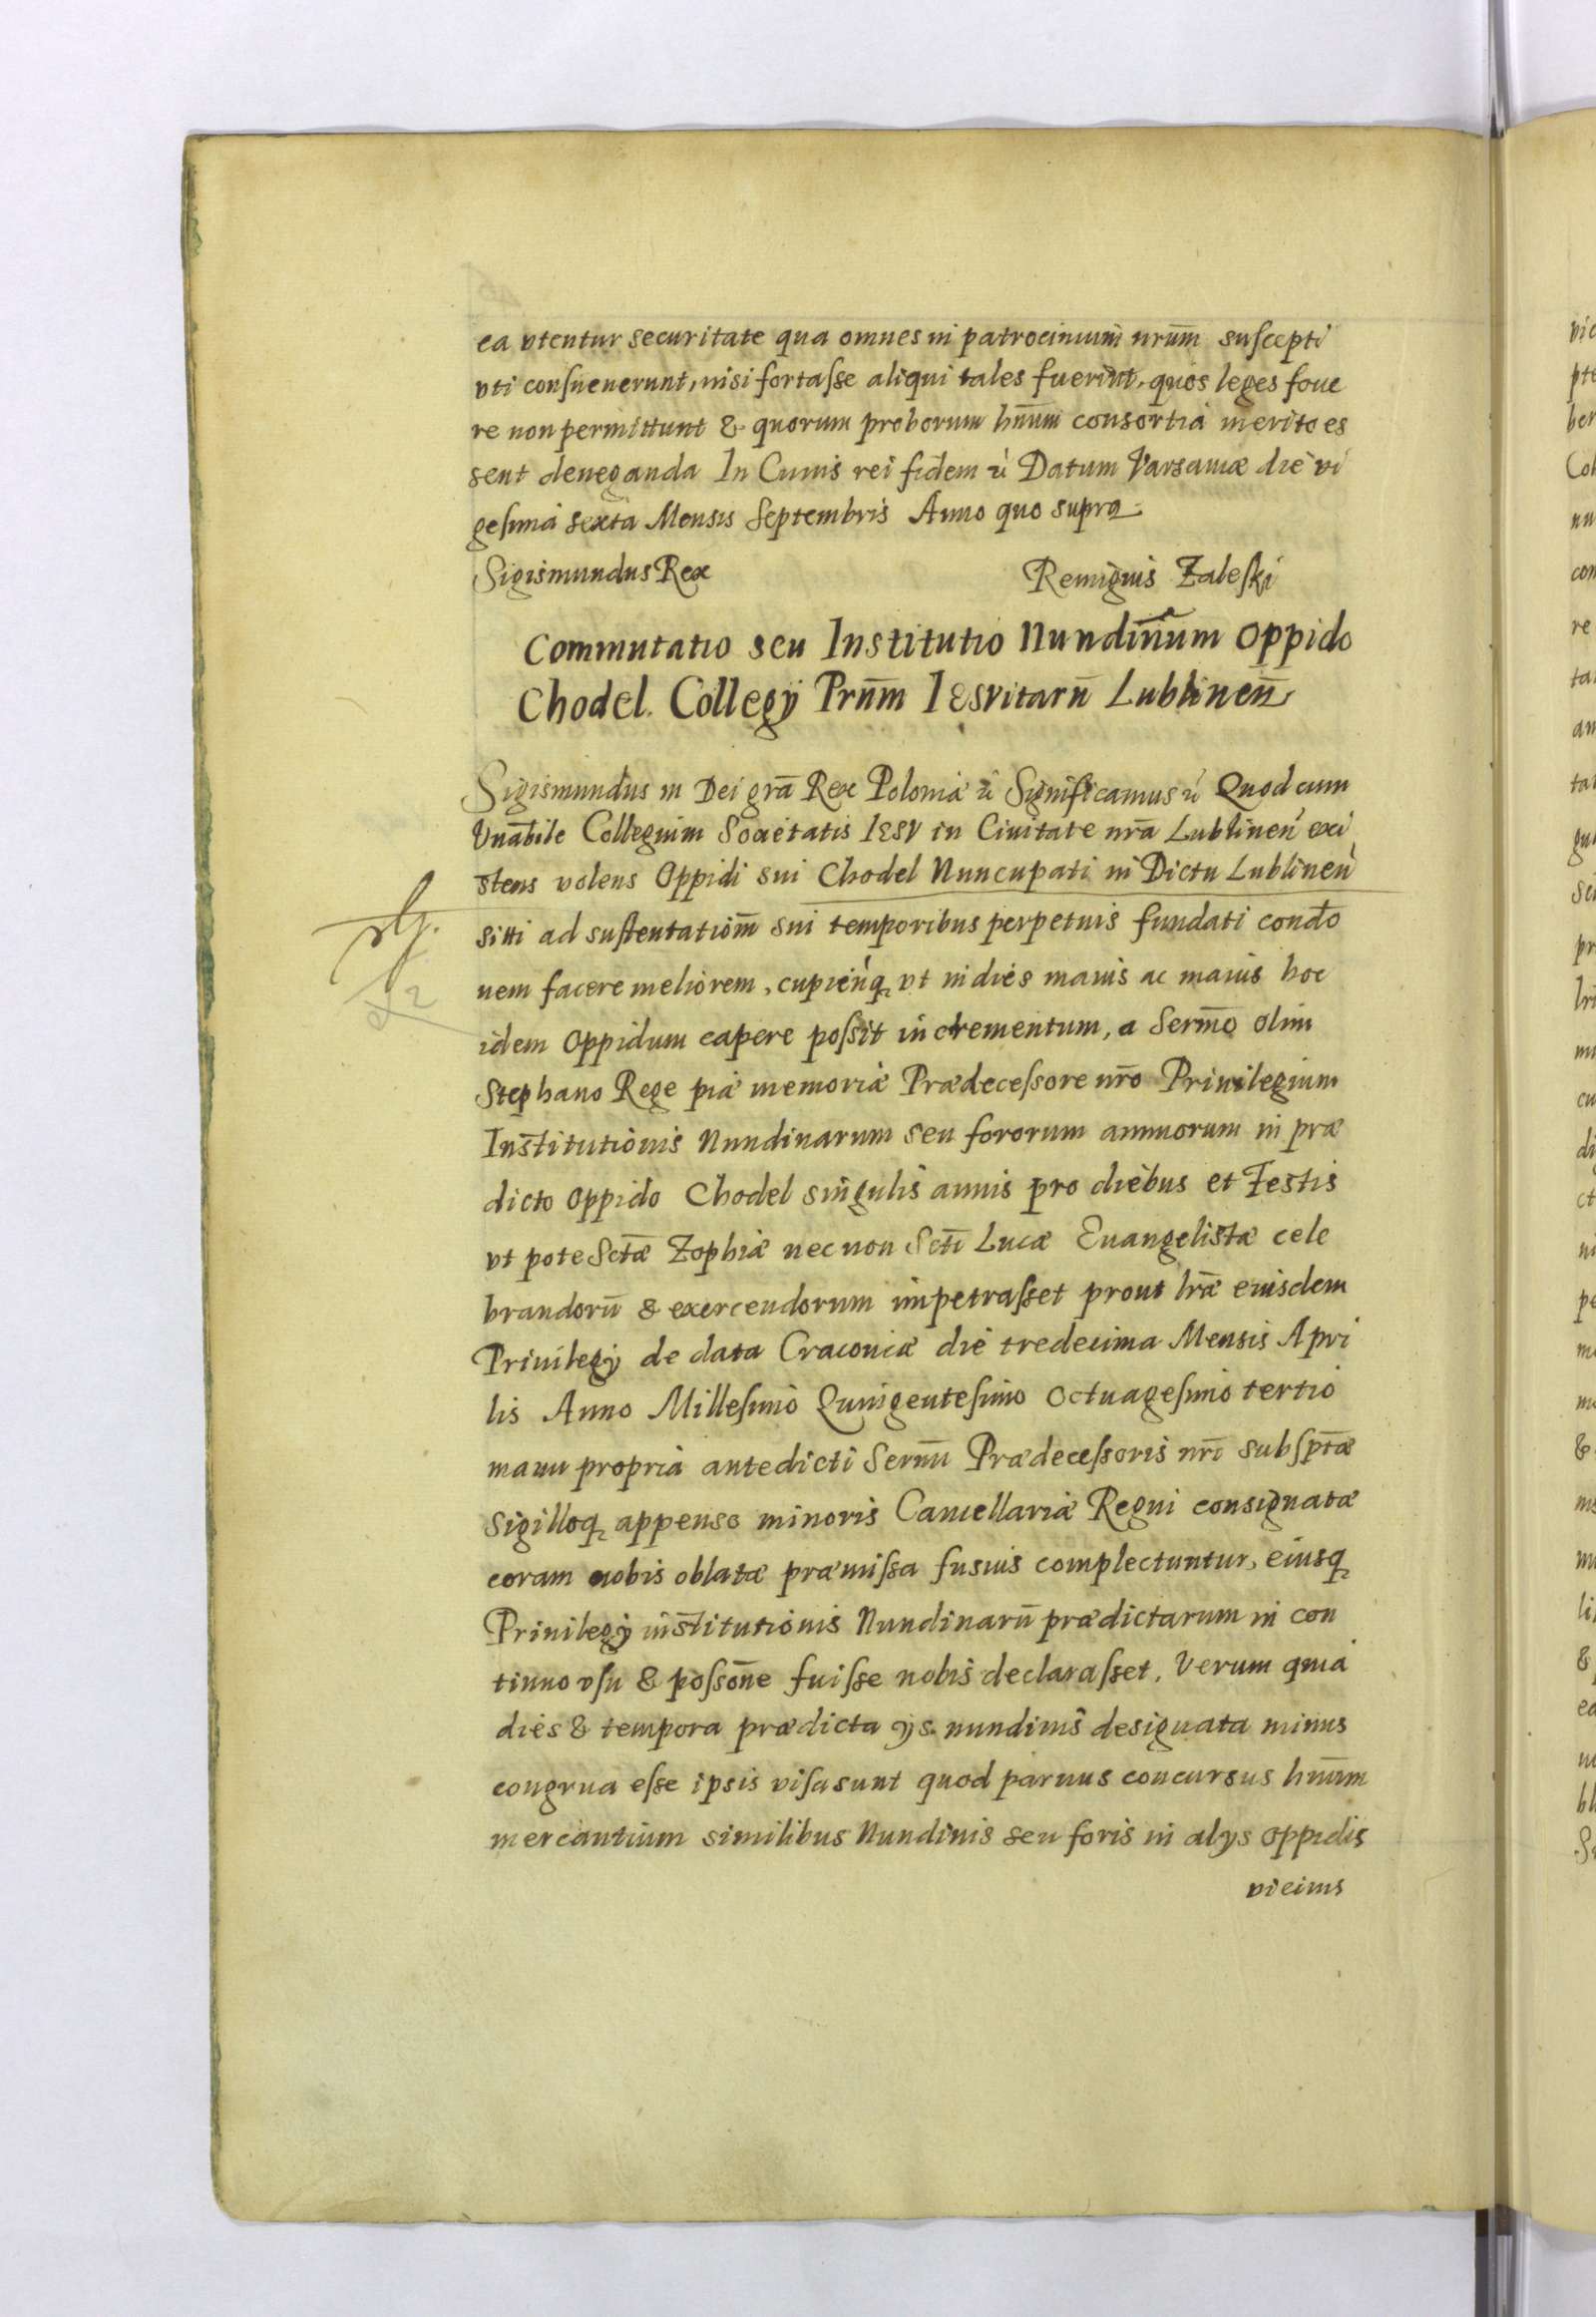 ea vtentur securitate qua omnes in patrocinium nrūm suscepti
vti consueuerunt, nisi fortasse aliqui tales fuerint, quos leges foue
re non permittunt & quorum proborum hnūm consortia merito es
sent deneganda In Cuius rei fidem ū Datum Varsauiæ die vi
gesima sexta Mensis Septembris Anno quo supra.
Sigismundus Rex
Remigius Zaleski
Commutatio seu Institutio Nundin̄um Oppido
Chodel. Collegÿ Prūm Iesvitarū Lublinen̄
Sigismundus III Dei grā Rex Poloniæ ū Significamus ū Quod cum
Vnābile Collegium Societatis Iesv in Ciuitate nrā Lublinen̄ exi
stens volens Oppidi sui Chodel Nuncupati in Dictu Lublinen̄
sitti ad sustentatiom̄ sui temporibus perpetuis fundati condō
nem facere meliorem, cupienq̨ vt in dies maius ac maius hoc
idem Oppidum capere possit incrementum, a Serm̄o olim
Stephano Rege piæ memoriæ Prædecessore nrō Priuilegium
Institutionis Nundinarum seu fororum annuorum in præ
dicto Oppido Chodel singulis annis pro diebus et Festis
vt pote Sctǣ Zophiæ nec non Sctī Lucæ Euangelistæ cele
brandorū & exercendorum impetrasset prout lrǣ eiusdem
Priuilegÿ de data Cracouiæ die tredecima Mensis Apri
lis Anno Millesimo Quingentesimo Octuagesimo tertio
manu propria antedicti Sernn̄ Prædecessoris nrī subsptǣ
Sigilloq̨ appenso minoris Cancellariæ Regni consignatæ
coram nobis oblatæ præmissa fusius complectuntur, eiusq̨
Priuilegÿ institutionis Nundinarū prædictarum in con
tinuo vsu & possōne fuisse nobis declarasset. Verum quia
dies & tempora prædicta ÿs. nundinis designata minus
congrua esse ipsis visa sunt quod paruus concursus hnūm
mercantium similibus Nundinis seu foris in alÿs oppidis
vicinis